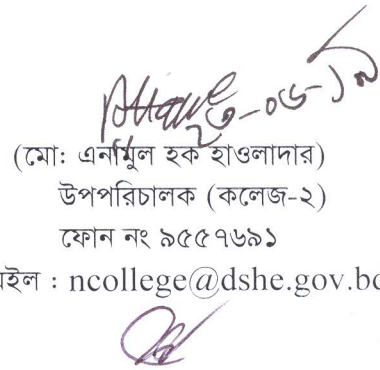 ২৩-০৬-১৯
(মো: এনামুল হক হাওলাদার)
উপপরিচালক (কলেজ-২)
ফোন নং ৯৫৫৭৬৯১
মেইল : ncollege@dshe.gov.bd